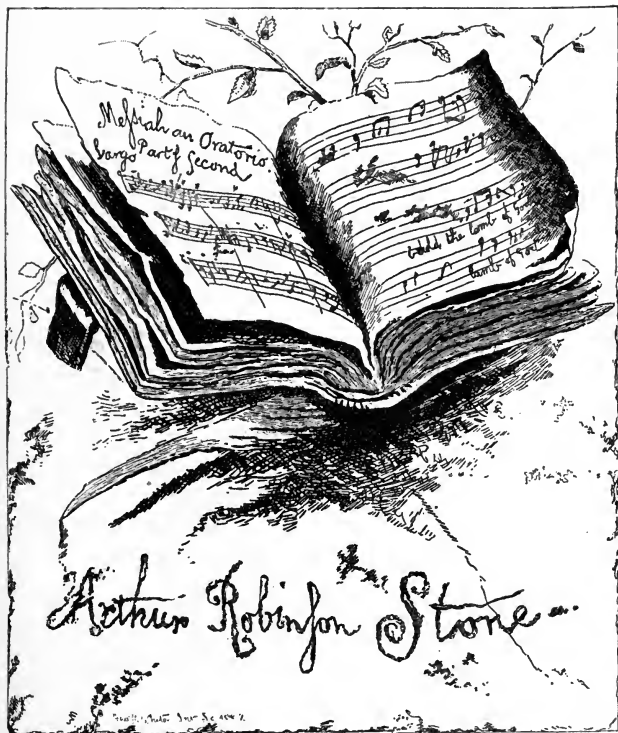 Meſsiah an Oratorio
Largo Part ſ Second
behold the lamb of
lamb of God
Arthur Robinſon Stone